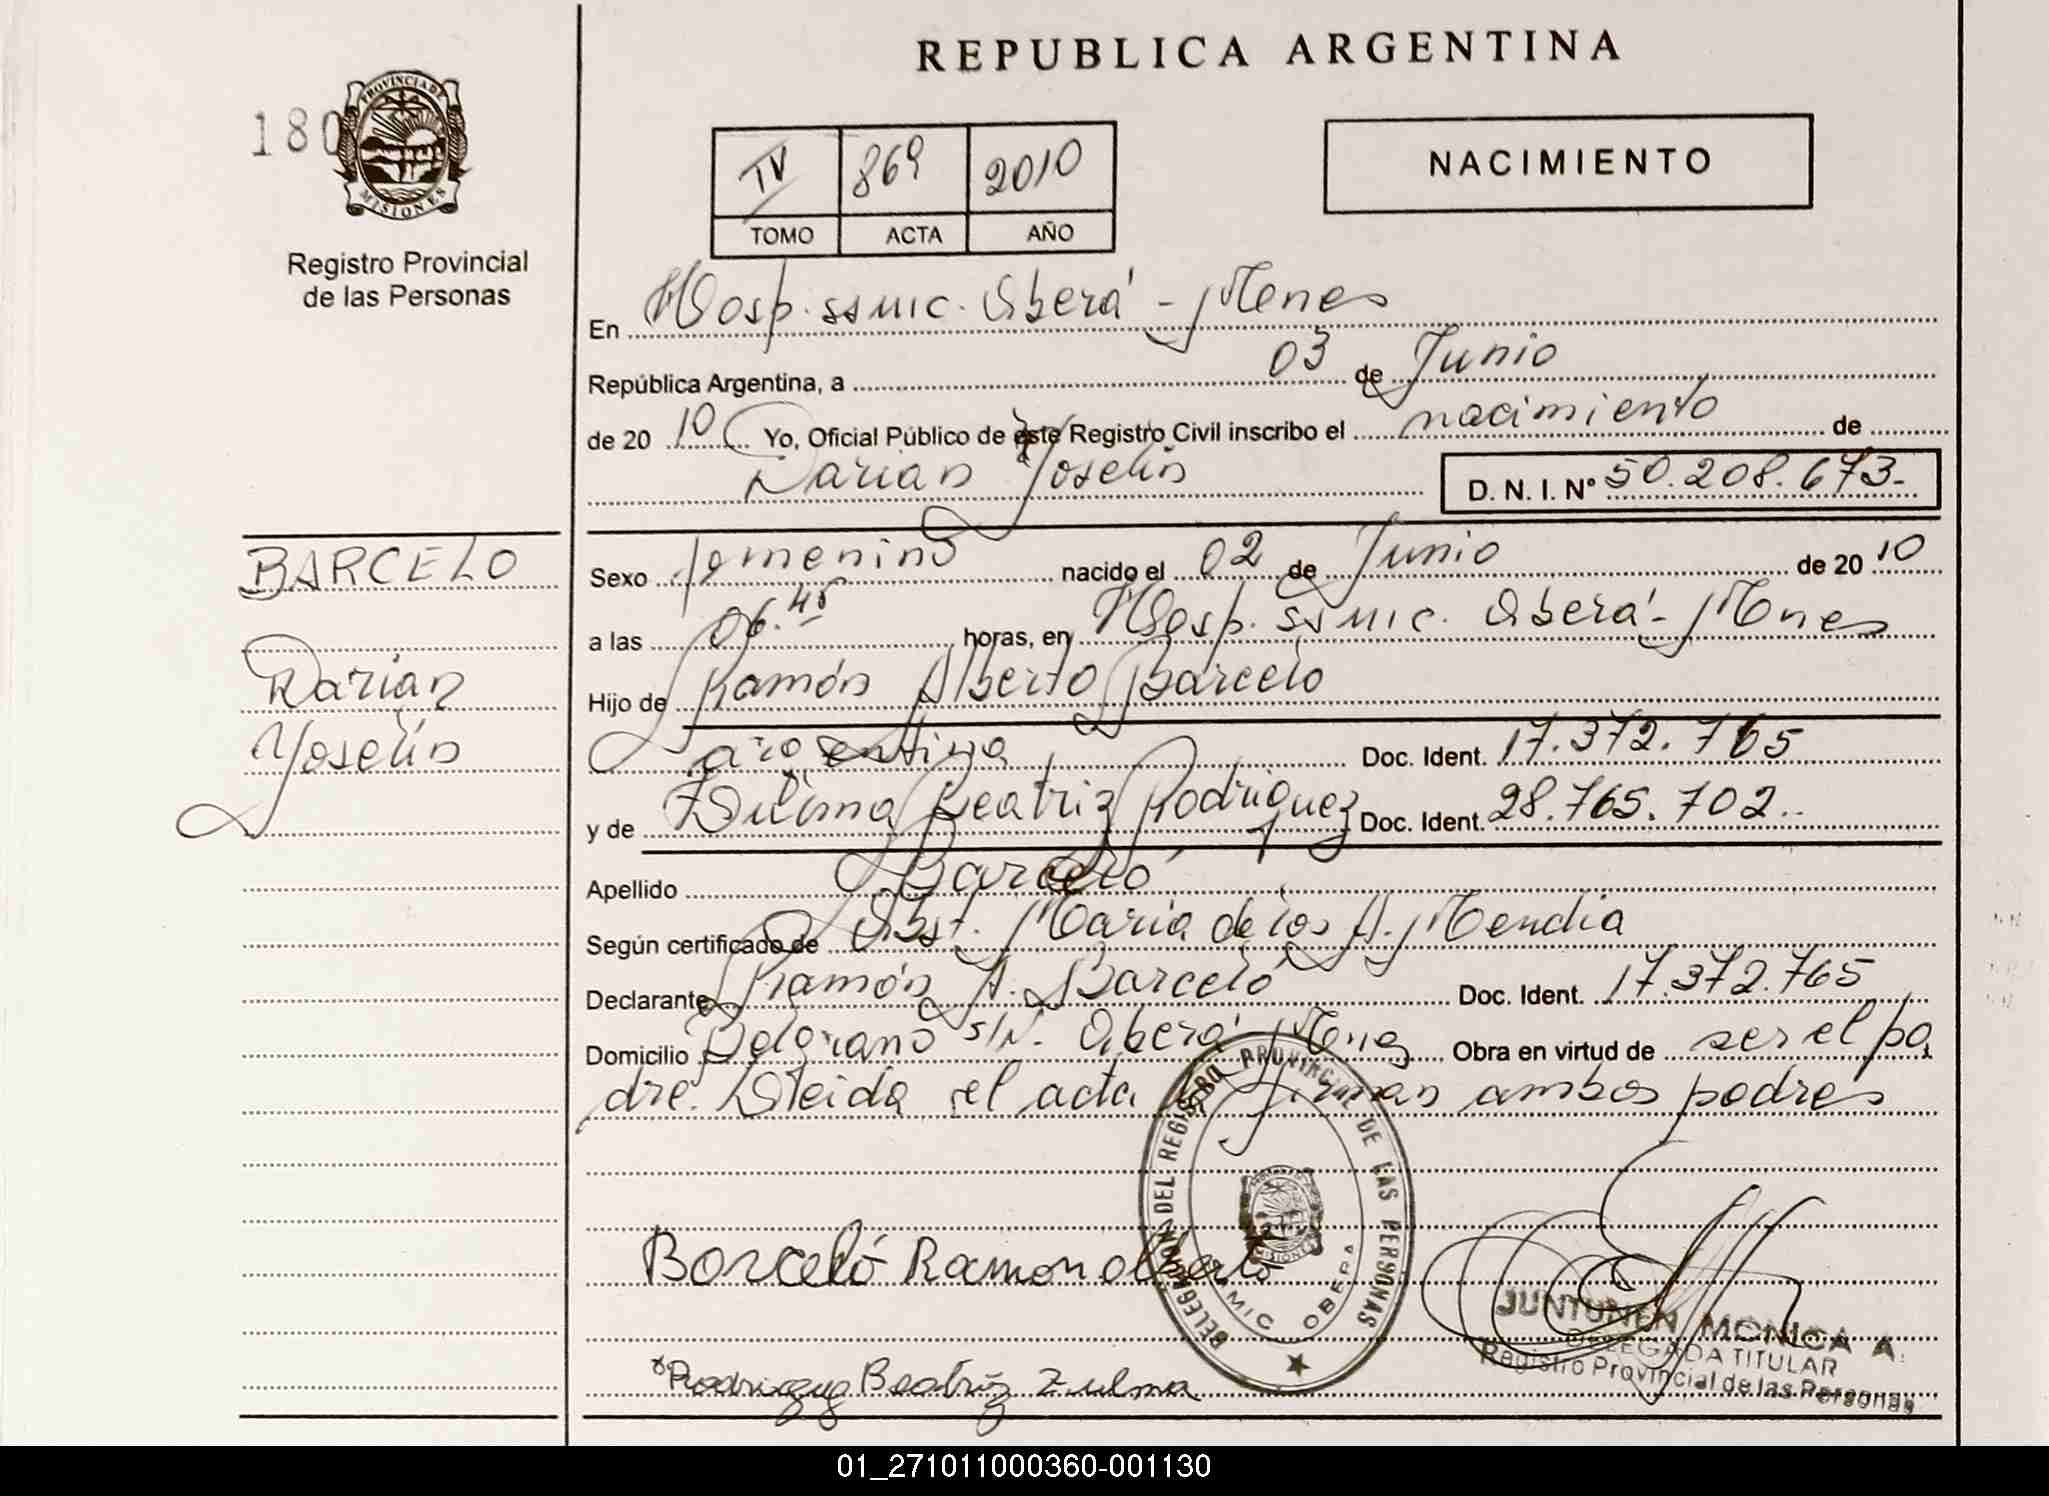 REPUBLICA ARGENTINA
180
PROVINCIA DE MISIONES
Registro Provincial
de las Personas
IV 869 2010
TOMO ACTA AÑO
NACIMIENTO
En Hosp. SSMIC. Oberá - Mnes
República Argentina, a 03 de Junio
de 2010 Yo, Oficial Público de este Registro Civil inscribo el nacimiento de
Darian Yoselin D. N. I. N° 50.208.673.-
BARCELO
Darian
Yoselin
Sexo femenino nacido el 02 de Junio de 2010
a las 06.45 horas, en Hosp. SSMIC. Oberá - Mnes
Hijo de Ramón Alberto Barceló
argentina Doc. Ident. 17.372.765
y de Zulma Beatriz Rodriguez Doc. Ident. 28.765.702..
Apellido Barceló
Según certificado de Obst. Maria de los A. Mendia
Declarante Ramón A. Barceló Doc. Ident. 17.372.765
Domicilio Belgrano s/N. Oberá Mnes Obra en virtud de ser el pa
dre. Leida el acta la firman ambos padres
DELEGACION DEL REGISTRO PROVINCIAL DE LAS PERSONAS
MISIONES
OBERA
Barceló Ramon alberto
JUNTUNEN MONICA A.
DELEGADA TITULAR
Registro Provincial de las Personas
Rodriguez Beatriz Zulma
01_271011000360-001130